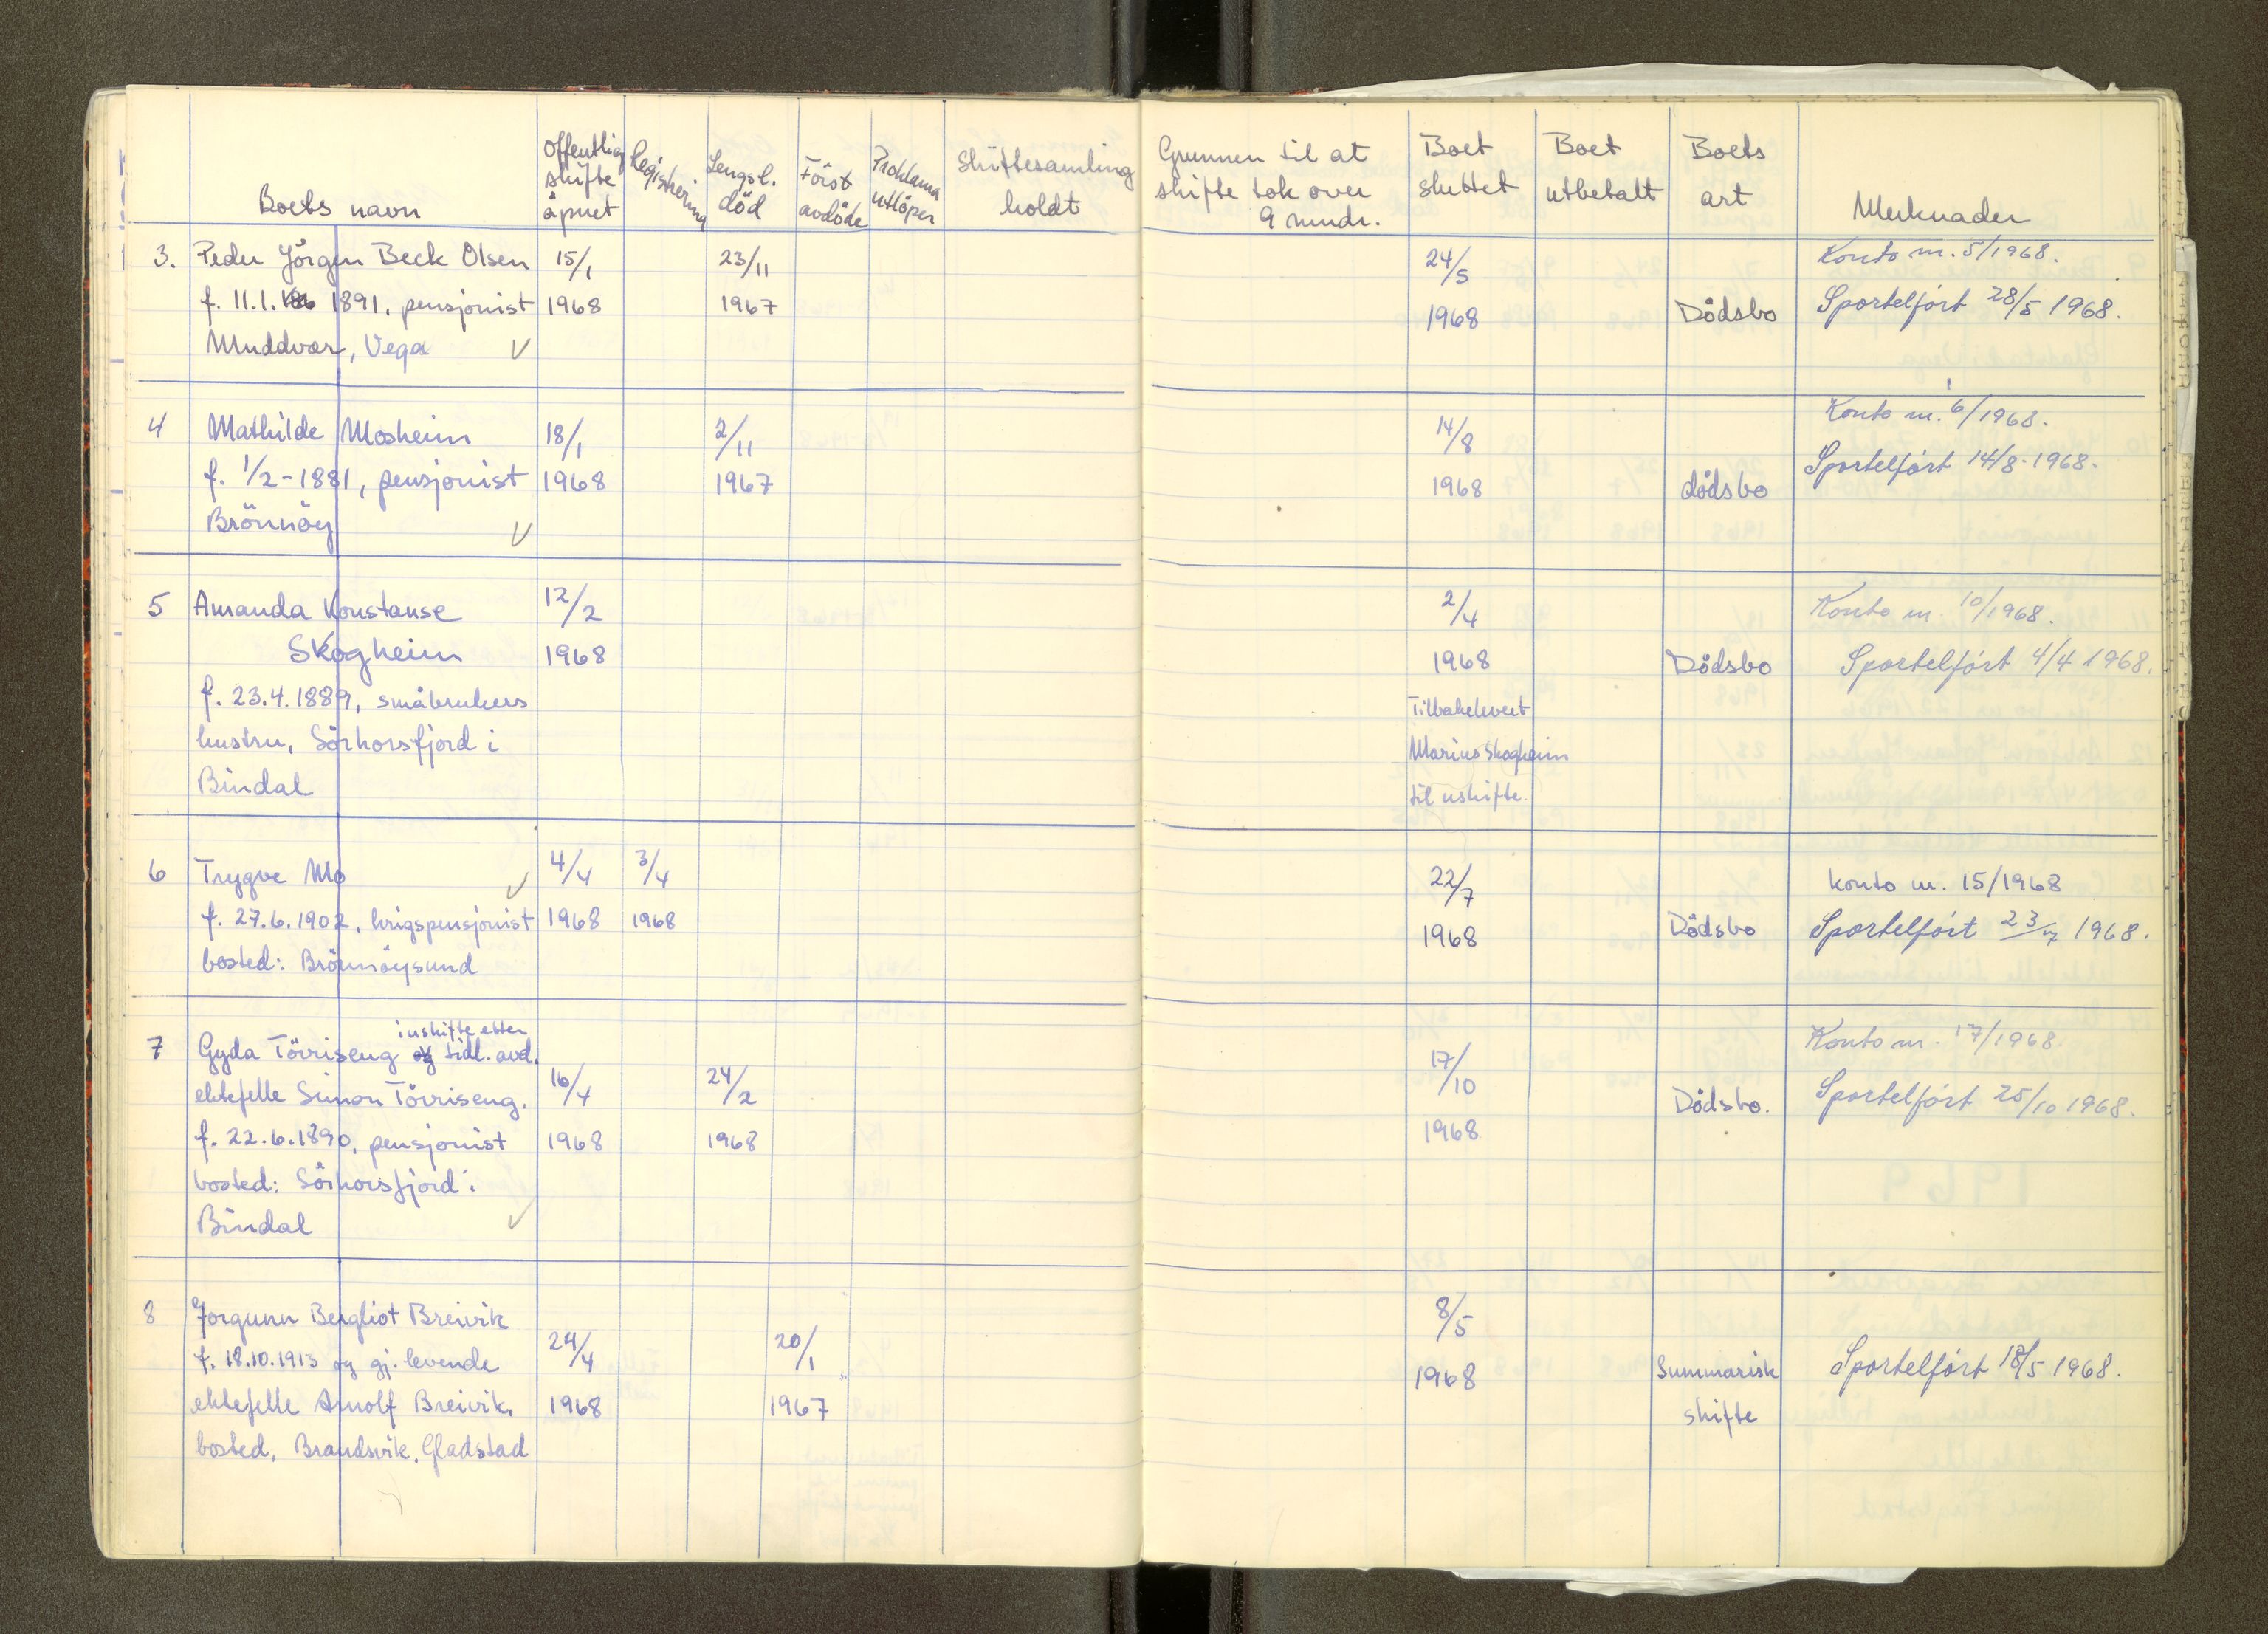 Boets navn
Offentlig skifte åpnet
Registrering
Lengstl. död
Först avdöde
Proklama utlöper
Skiftesamling holdt
Grunnen til at skifte tok over 9 mndr.
Boet sluttet
Boet utbetalt
Boets art
Merknader
3. Peder Jörgen Beck Olsen 15/1 23/11 24/5 Konto nr. 5/1968.
f. 11.1. 1891, pensjonist 1968 1967 1968 Dödsbo Sportelfört 28/5 1968.
Muddvær, Vega V
4 Mathilde Mosheim 18/1 2/11 14/8 Konto nr. 6/1968.
f. 1/2-1881, pensjonist 1968 1967 1968 dödsbo Sportelfört 14/8-1968.
Brönnöy V
5 Amanda Konstanse 12/2 2/4 Konto nr. 10/1968.
Skogheim 1968 1968 Dödsbo Sportelfört 4/4 1968.
f. 23.4.1889, småbrukers Tilbakelevert
hustru, Sörhorsfjord i Marius Skogheim
Bindal til uskifte.
6 Trygve Mo V 4/4 3/4 22/7 konto nr. 15/1968
f. 27.6.1902, krigspensjonist 1968 1968 1968 Dödsbo Sportelfört 23/7 1968.
bosted: Brönnöysund
i uskifte etter
7 Gyda Tövriseng og tidl. avd. Konto nr. 17/1968.
ektefelle Simon Tövriseng. 16/4 24/2 17/10 Dödsbo. Sportelfört 25/10 1968.
f. 22.6.1890, pensjonist 1968 1968 1968
bosted: Sörhorsfjord i
Bindal V
8 Jorgunn Bergliot Breivik 8/5
f. 18.10.1913 og gj. levende 24/4 20/1 Summarisk Sportelfört 18/5 1968.
ektefelle Arnolf Breivik. 1968 1967 1968 skifte
bosted, Brandsvik, Gladstad